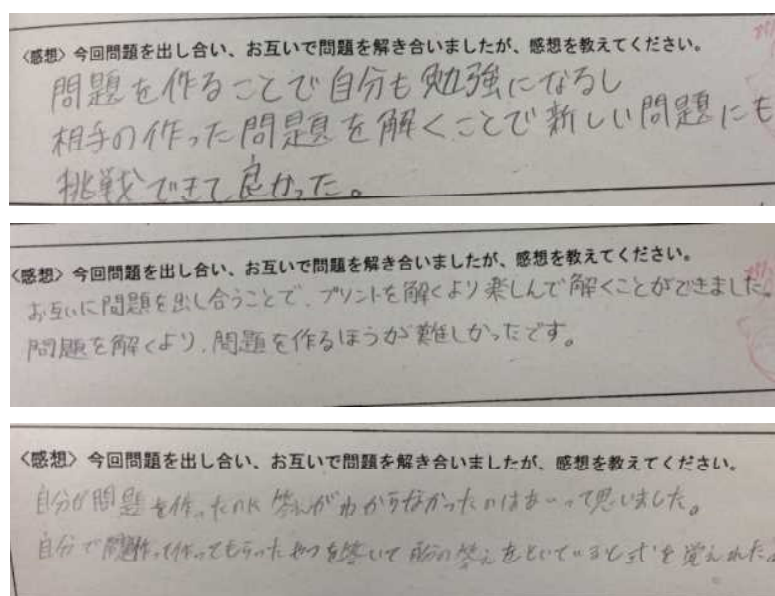 〈感想〉今回問題を出し合い、お互いで問題を解き合いましたが、感想を教えてください。
問題を作ることで自分も勉強になるし
相手の作った問題を解くことで新しい問題にも
挑戦できて良かった。
〈感想〉今回問題を出し合い、お互いで問題を解き合いましたが、感想を教えてください。
お互いに問題を出し合うことで、プリントを解くより楽しんで解くことができました。
問題を解くより、問題を作るほうが難しかったです。
〈感想〉今回問題を出し合い、お互いで問題を解き合いましたが、感想を教えてください。
自分が問題を作ったのに答えがわからなかったのはあーって思いました。
自分で作って作ってもらったやつを答いて自分の答えをといていると式を覚えれた。